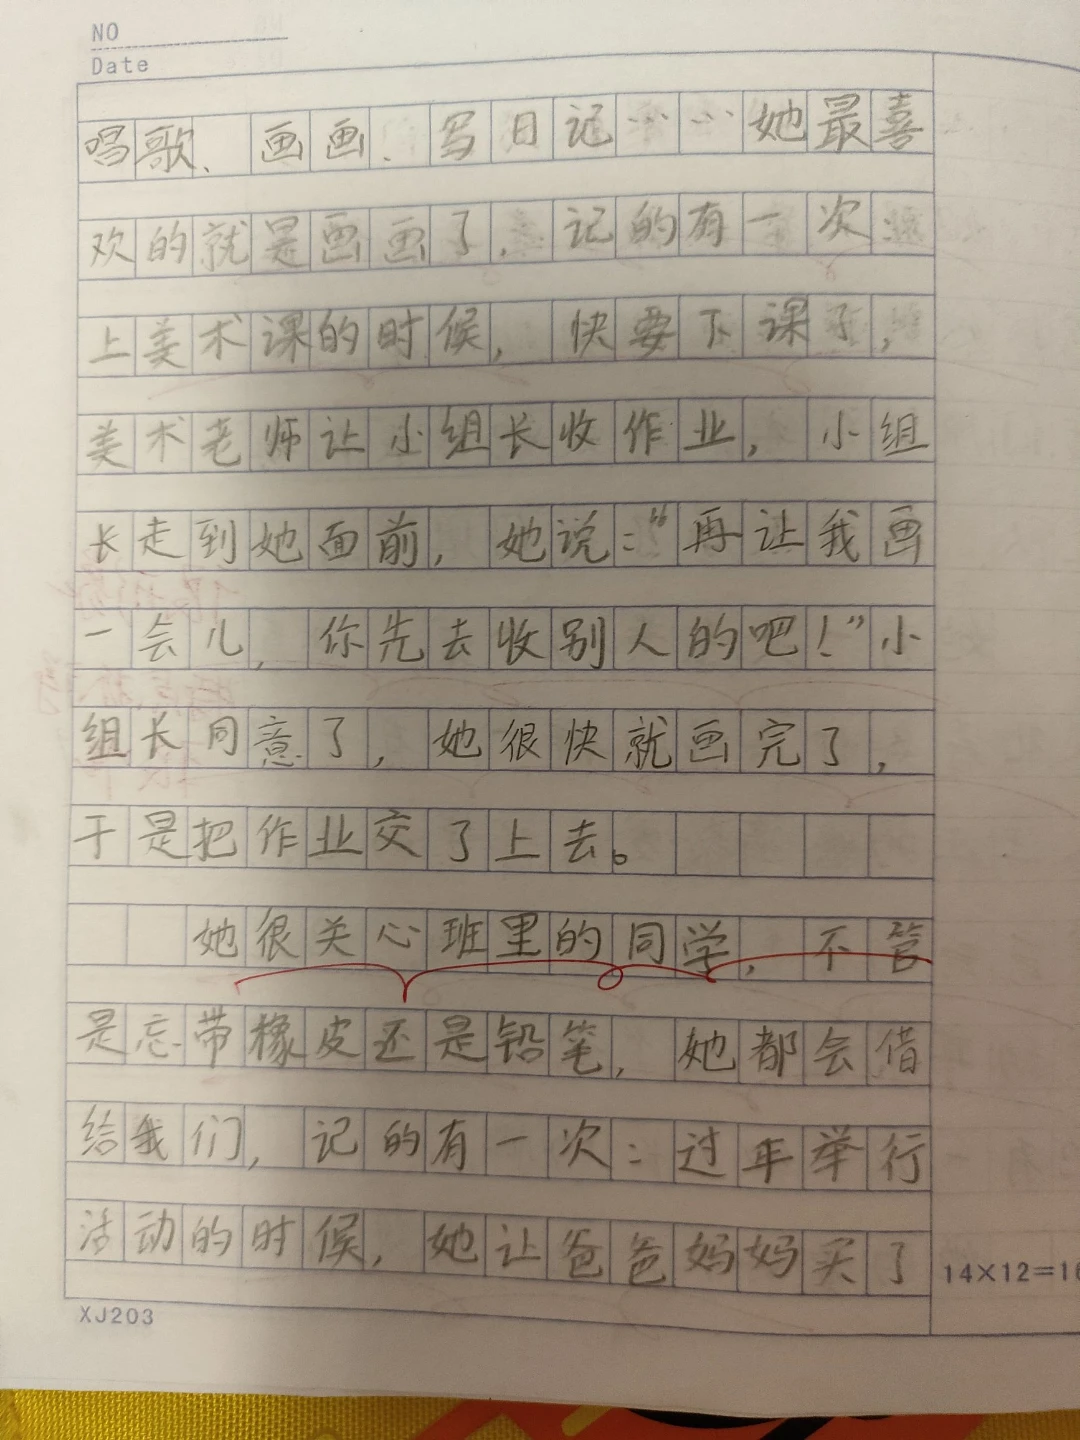 NO
Date
唱歌、画画、写日记……她最喜
欢的就是画画了，记的有一次：
上美术课的时候，快要下课了，
美术老师让小组长收作业，小组
长走到她面前，她说：“再让我画
一会儿，你先去收别人的吧！”小
组长同意了，她很快就画完了，
于是把作业交了上去。
她很关心班里的同学，不管
是忘带橡皮还是铅笔，她都会借
给我们，记的有一次：过年举行
活动的时候，她让爸爸妈妈买了
14×12=16
XJ203